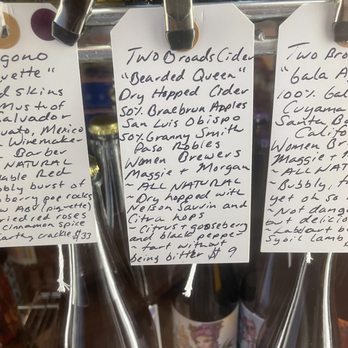 gono
yette"
d skins
Must of
Salvador
uato, Mexico
Winemaker
Barber
NATURAL
able Red
bbly burst of
berry pop rocks
(piquette)
ried red roses
cinnamon spice
earthy crackle $33
Two Broads Cider
"Bearded Queen"
Dry Hopped Cider
50% Braeburn Apples
San Luis Obispo
50% Granny Smith
Paso Robles
Women Brewers
Maggie + Morgan
~ ALL NATURAL
~ Dry hopped with
Nelson Sauvin and
Citra hops
~ Citrus, gooseberry
and black pepper
~ tart without
being bitter $ 9
Two Bro
"Gala A
100% Gal
Cuyama
Santa Ba
Califo
Women Br
Maggie + M
~ ALL NAT
~ Bubbly, f
yet oh so
~ Not dange
but delicio